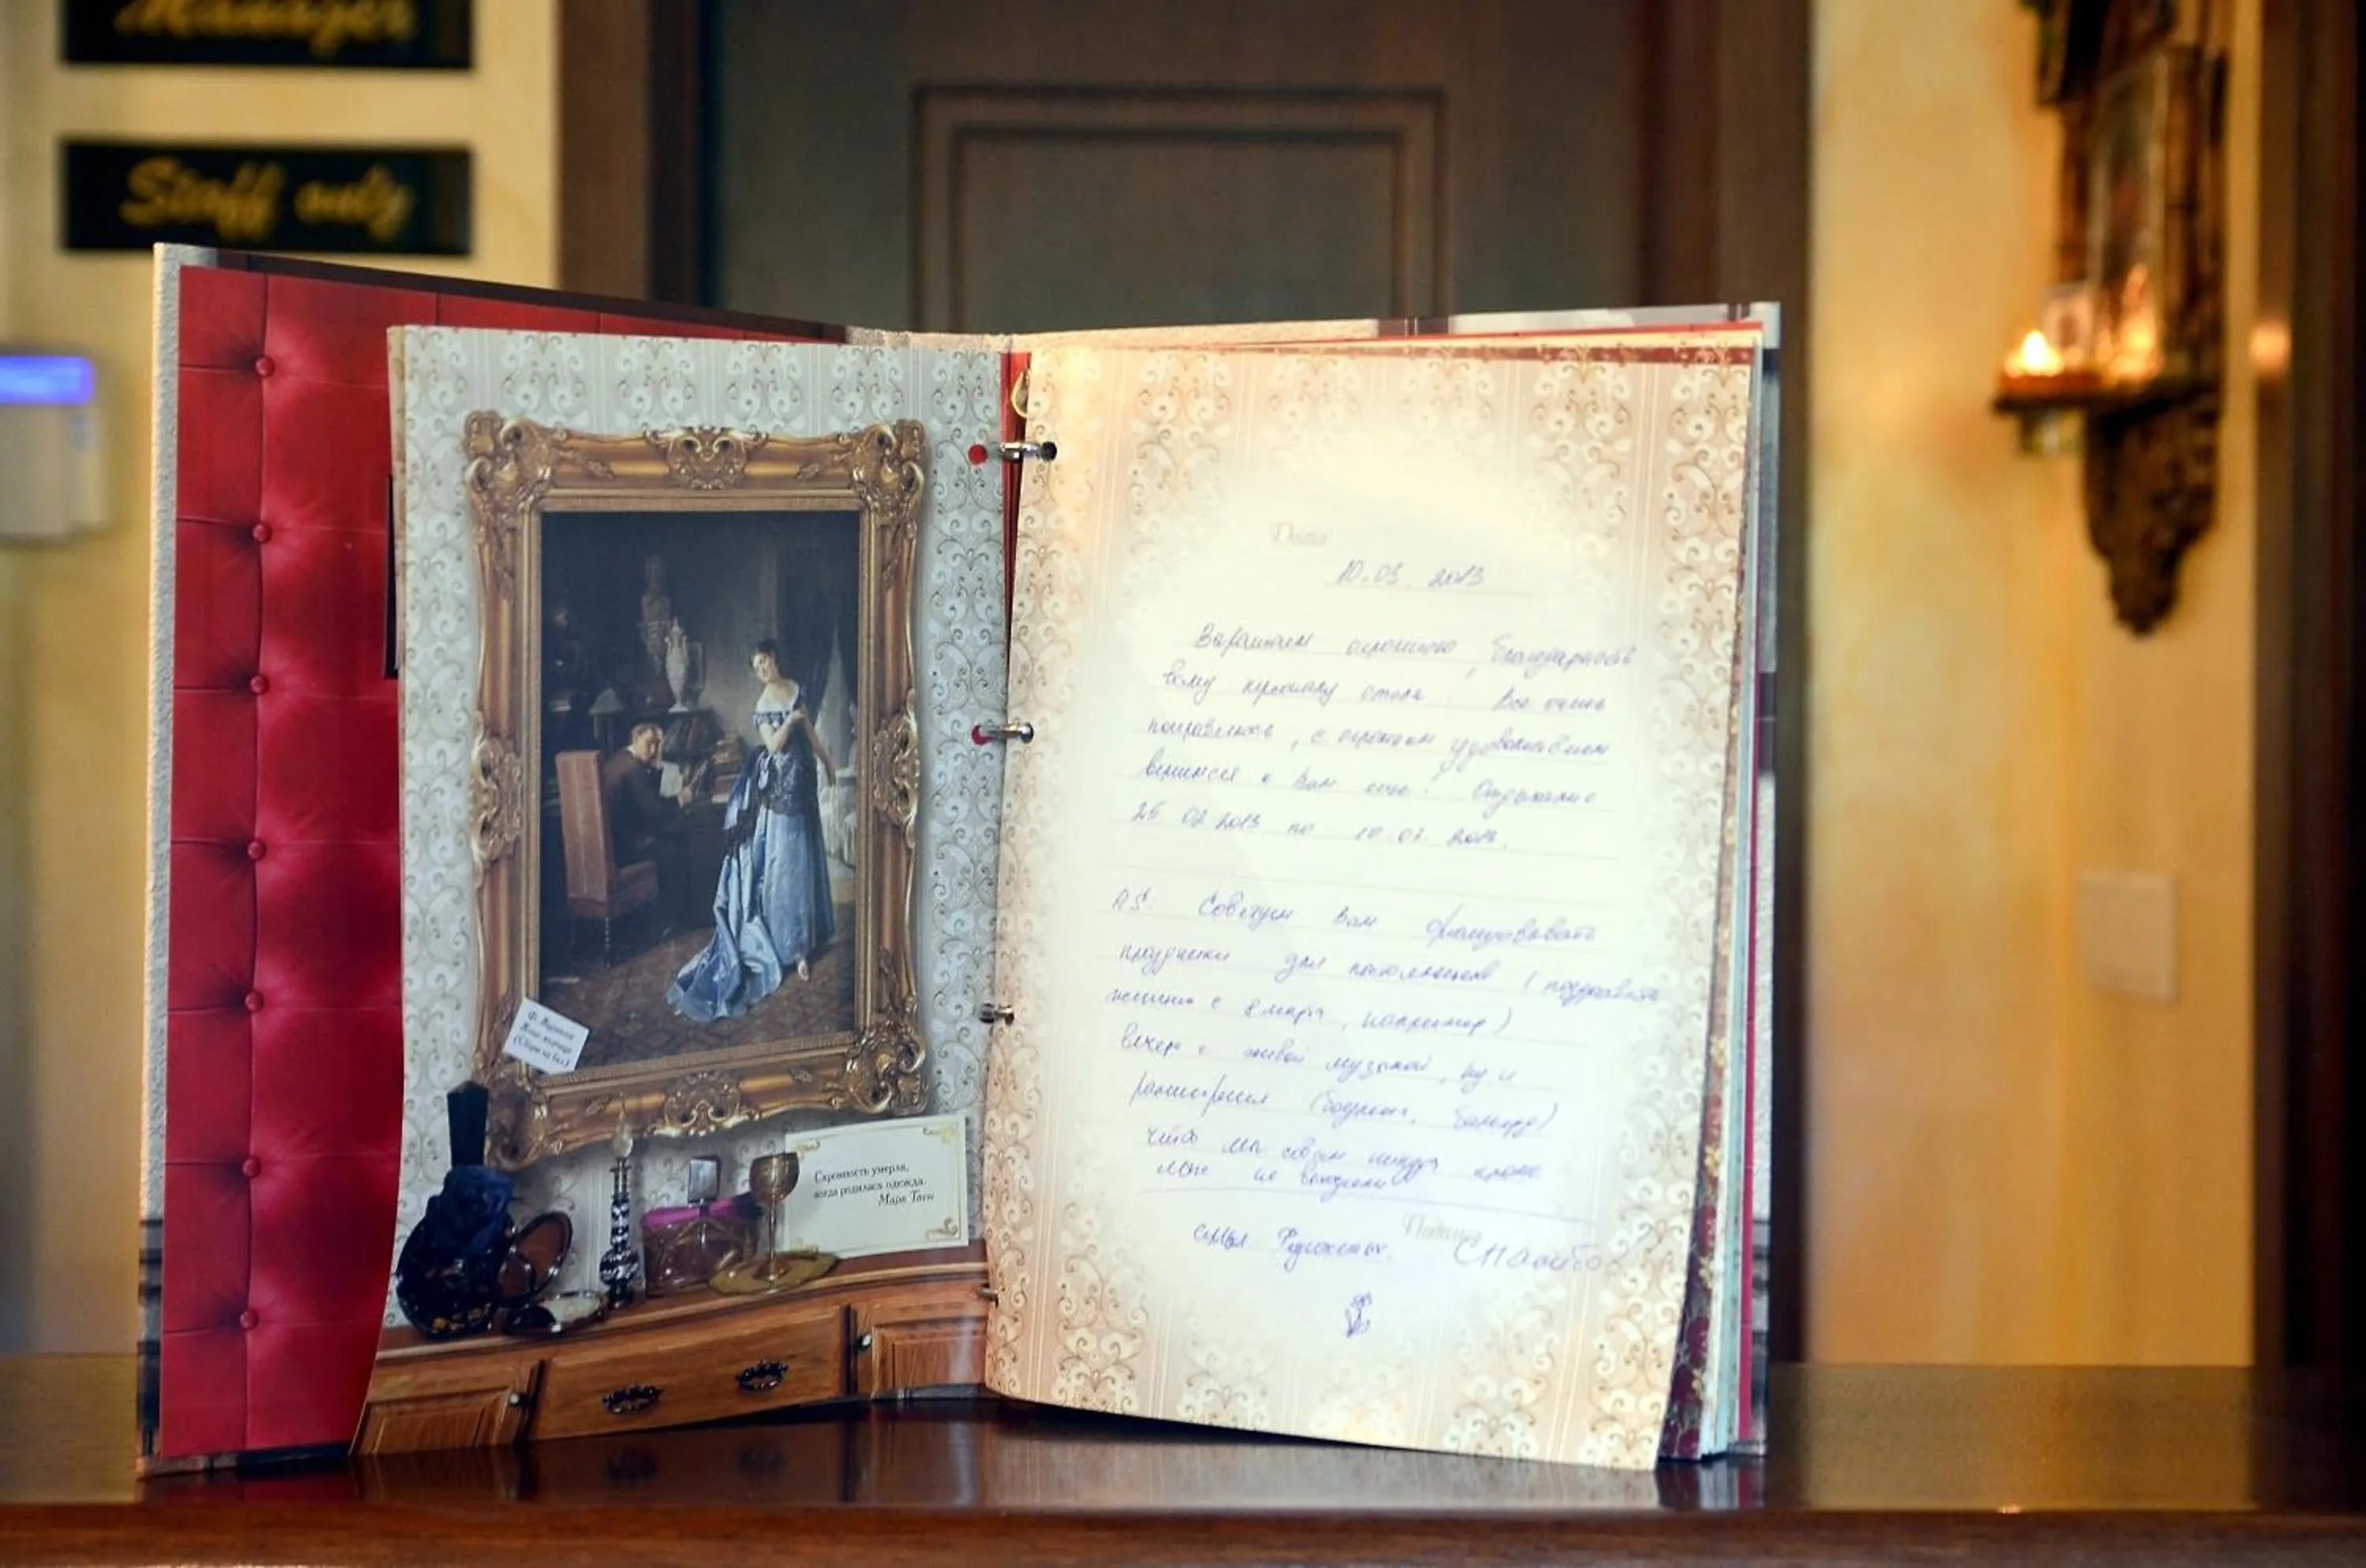 Manager
Staff only
Скромность умерла,
когда родилась одежда.
Марк Твен
Дата
10.03 2013
Выражаем огромную благодарность
всему персоналу отеля. Все очень
понравилось, с огромным удовольствием
вернемся к Вам еще! Отдыхали с
25 02 2013 по 10.03. 2013.
P.S: Советуем Вам организовывать
праздники для постояльцев (поздравить
женщин с 8 марта, например)
вечер с живой музыкой, ну и
(боулинг, бильярд)
что мы совсем никуда кроме
не выходили
Подпись
семья
Спасибо